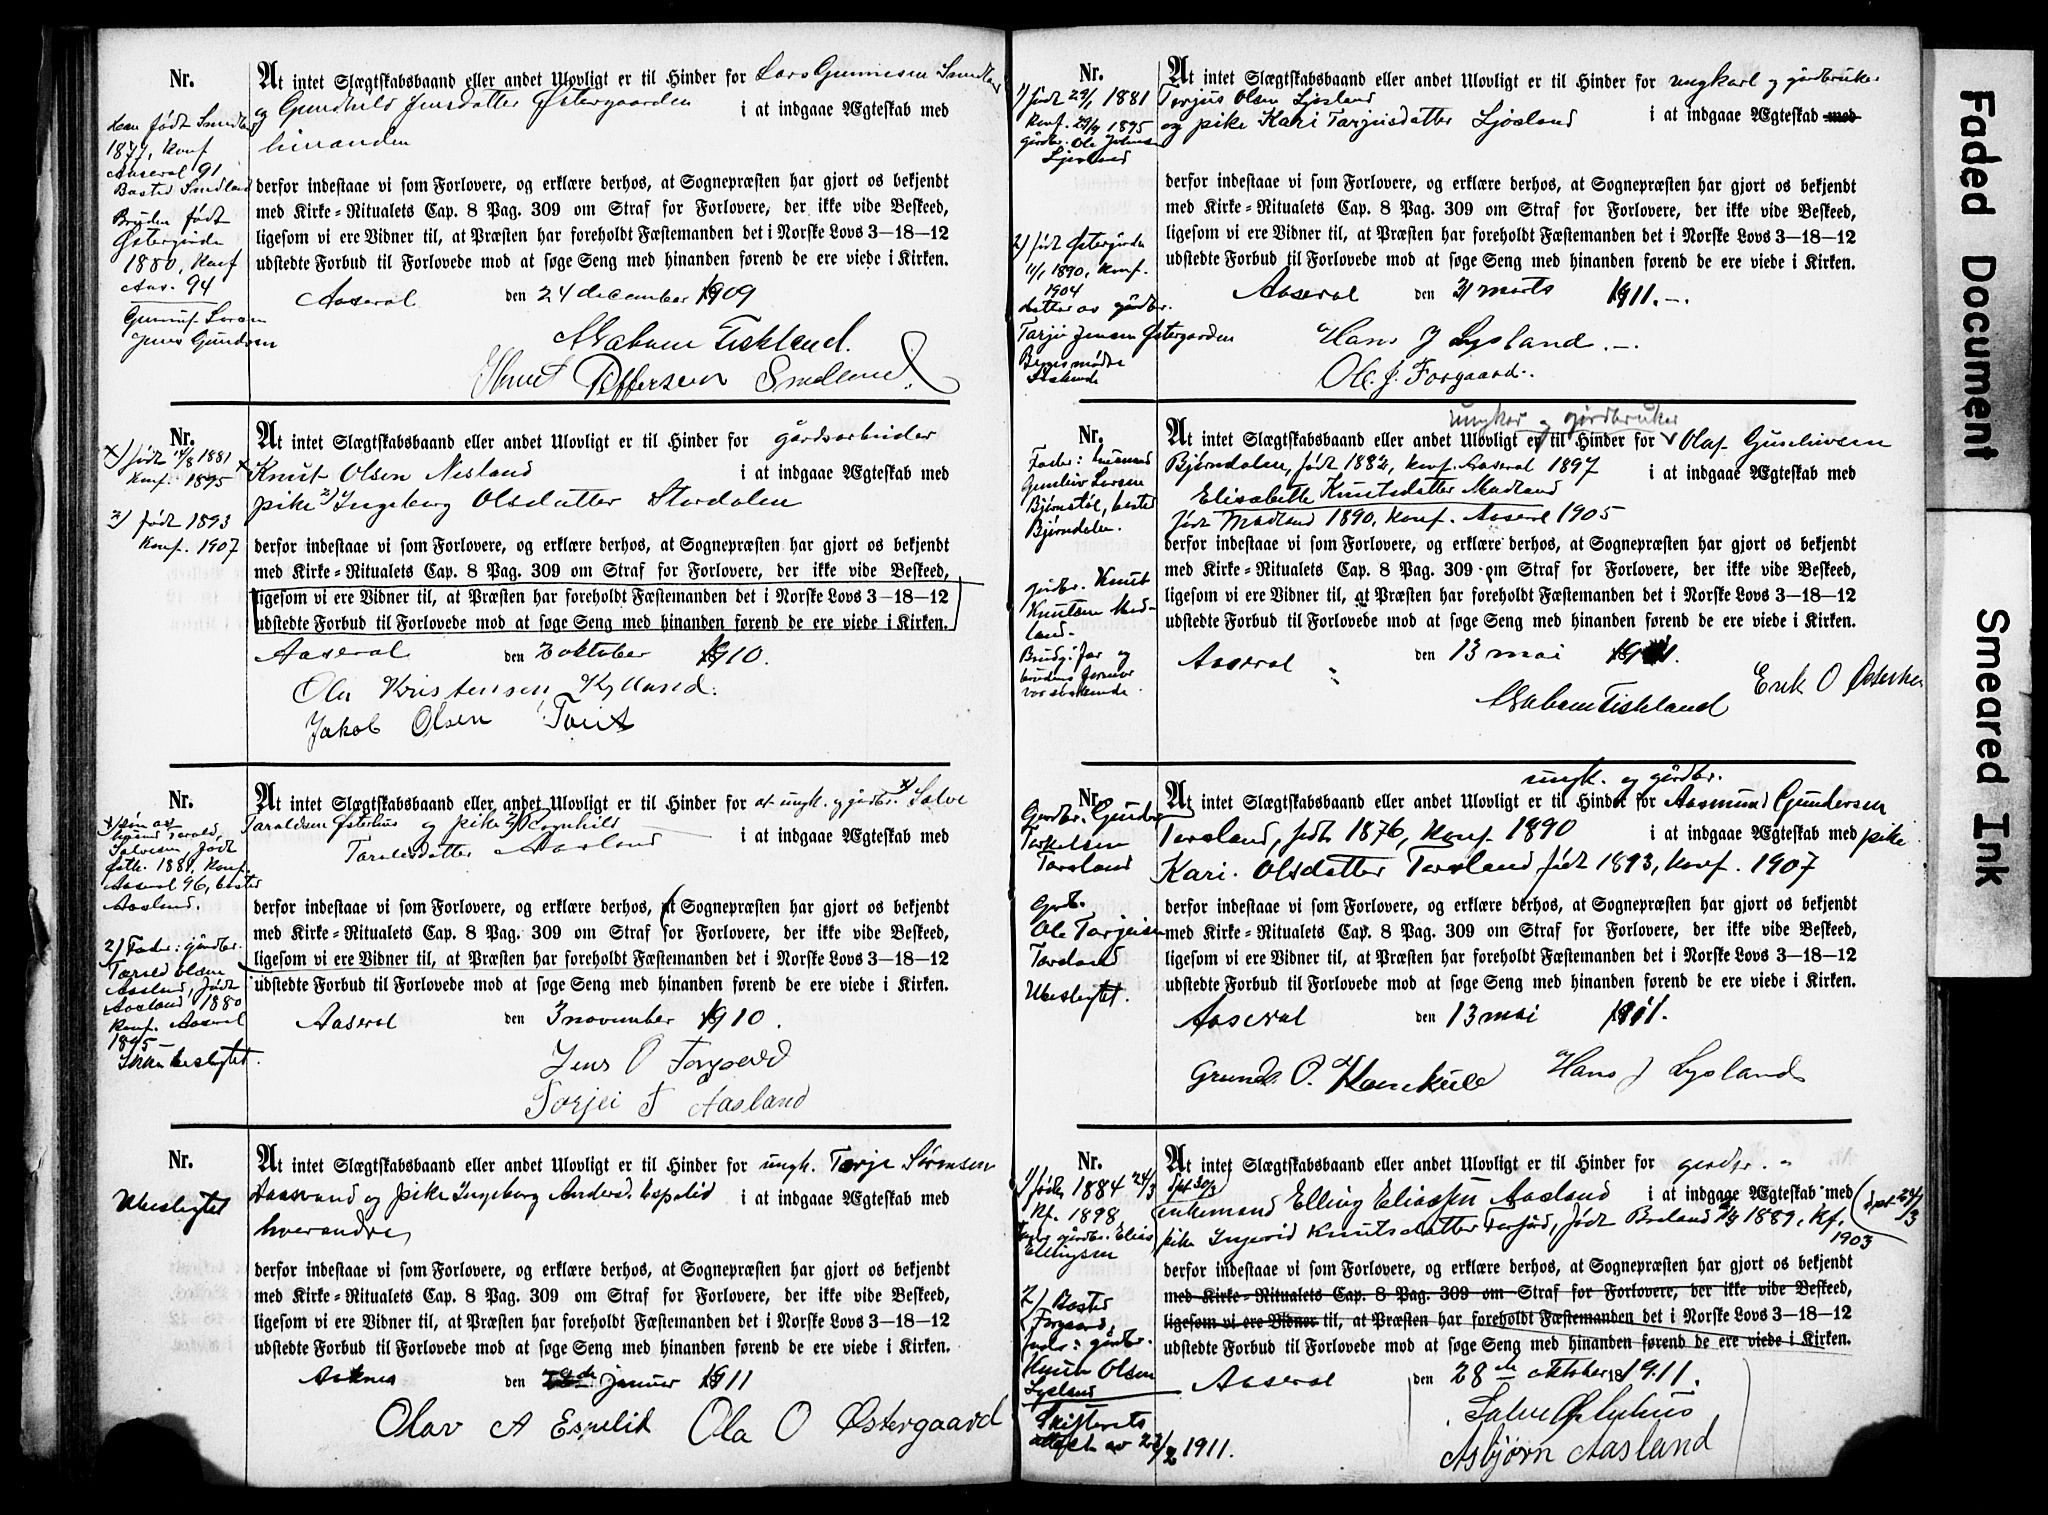 Nr.
At intet Slægtskabsbaand eller andet Ulovligt er til Hinder for Lars Gunnufsen Smedland
og Gundhild Jensdatter Østergaarden i at indgaae Ægteskab med
hinanden
Han født Smedland
1877, Konf
Aaseral 91
Bosted Smedland
Bruden født
Østergårde
1880, Konf
Aas. 94
Gunnuf Larsen
Jens Gundersen
derfor indestaae vi som Forlovere, og erklære derhos, at Sognepræsten har gjort os bekjendt
med Kirke-Ritualets Cap. 8 Pag. 309 om Straf for Forlovere, der ikke vide Beskeed,
ligesom vi ere Vidner til, at Præsten har foreholdt Fæstemanden det i Norske Lovs 3-18-12
udstedte Forbud til Forlovede mod at søge Seng med hinanden førend de ere viede i Kirken.
Aaseral den 24 december 1909
Fiskland.
Smedland.
Nr.
At intet Slægtskabsbaand eller andet Ulovligt er til Hinder for gårdsarbeider
Knut Olsen Nesland i at indgaae Ægteskab med
pike 2) Ingeborg Olsdatter Stordalen
x) født 14/8 1881
Konf. 1895
2) født 1893
Konf. 1907
derfor indestaae vi som Forlovere, og erklære derhos, at Sognepræsten har gjort os bekjendt
med Kirke-Ritualets Cap. 8 Pag. 309 om Straf for Forlovere, der ikke vide Beskeed,
ligesom vi ere Vidner til, at Præsten har foreholdt Fæstemanden det i Norske Lovs 3-18-12
udstedte Forbud til Forlovede mod at søge Seng med hinanden førend de ere viede i Kirken.
Aaseral den oktober 1910.
Ole Kristensen Kylland.
Jakob Olsen
Nr.
At intet Slægtskabsbaand eller andet Ulovligt er til Hinder for at ungk. og gårdbr. x) Salve
Taraldsen Østerhus og pike 2) Ragnhild i at indgaae Ægteskab med
Taraldsdatter Aasland
x) søn av
Tarald
Salvesen, født
Østh. 1881, konf.
Aaseral 96, bosted
Aasland.
2) Fader: gårdbr.
Tarald Olsen
Aasland, født
Aasland 1880
Konf. Aaseral
1895
Ikke beslegtet.
derfor indestaae vi som Forlovere, og erklære derhos, at Sognepræsten har gjort os bekjendt
med Kirke-Ritualets Cap. 8 Pag. 309 om Straf for Forlovere, der ikke vide Beskeed,
ligesom vi ere Vidner til, at Præsten har foreholdt Fæstemanden det i Norske Lovs 3-18-12
udstedte Forbud til Forlovede mod at søge Seng med hinanden førend de ere viede i Kirken.
Aaseral den 3 november 1910.
Jens O
Torjei T Aasland
Nr.
At intet Slægtskabsbaand eller andet Ulovligt er til Hinder for ungk. Torje Sørensen
og pike Ingeborg Andersd. Espelid i at indgaae Ægteskab med
hverandre
Ubeslegtet
derfor indestaae vi som Forlovere, og erklære derhos, at Sognepræsten har gjort os bekjendt
med Kirke-Ritualets Cap. 8 Pag. 309 om Straf for Forlovere, der ikke vide Beskeed,
ligesom vi ere Vidner til, at Præsten har foreholdt Fæstemanden det i Norske Lovs 3-18-12
udstedte Forbud til Forlovede mod at søge Seng med hinanden førend de ere viede i Kirken.
den januar 1911
Olav A Espelid Ola O Østergaard
Nr.
At intet Slægtskabsbaand eller andet Ulovligt er til Hinder for ungkarl og gårdbruker
Torjus Olsen Ljosland
og pike Kari Tarjeisdatter Ljosland i at indgaae Ægteskab med
1) født 29/1 1881
Konf. 29/9 1895
gårdbr. Ole
Ljosland
2) født Østergårde
11/1 1890, konf.
1904
datter av gårdbr.
Tarjei Jensen Østergarden
Begges mødre
søskende
derfor indestaae vi som Forlovere, og erklære derhos, at Sognepræsten har gjort os bekjendt
med Kirke-Ritualets Cap. 8 Pag. 309 om Straf for Forlovere, der ikke vide Beskeed,
ligesom vi ere Vidner til, at Præsten har foreholdt Fæstemanden det i Norske Lovs 3-18-12
udstedte Forbud til Forlovede mod at søge Seng med hinanden førend de ere viede i Kirken.
Aaseral den 31 marts 1911.
Hans J Lysland
Ole J. Forgaard.
Nr.
ungkar og gårdbruker
At intet Slægtskabsbaand eller andet Ulovligt er til Hinder for Olaf Gunleivsen
Bjørndalen, født 1882, konf. Aaseral 1897 i at indgaae Ægteskab med
Elisabette Knutsdatter Madland
født Madland 1890, Konf. Aaseral 1905
Fader: husmand
Gunleiv Larsen
Bjørnstøl, bosted
Bjørndalen.
gårdbr. Knut
Knutsen Mad-
land.
Brudg. far og
brudens
var søskende.
derfor indestaae vi som Forlovere, og erklære derhos, at Sognepræsten har gjort os bekjendt
med Kirke-Ritualets Cap. 8 Pag. 309 om Straf for Forlovere, der ikke vide Beskeed,
ligesom vi ere Vidner til, at Præsten har foreholdt Fæstemanden det i Norske Lovs 3-18-12
udstedte Forbud til Forlovede mod at søge Seng med hinanden førend de ere viede i Kirken.
Aaseral den 13 mai 1911.
Fiskland Erik O Østerhus
Nr.
ungk. og gårdbr.
At intet Slægtskabsbaand eller andet Ulovligt er til Hinder for Aasmund Gundersen
Torsland, født 1876, Konf. 1890 i at indgaae Ægteskab med pike
Kari Olsdatter Torsland født 1893, Konf. 1907
Gårdbr. Gunder
Torkelsen
Torsland
Grdb.
Ole Torjeisen
Torsland
Ubeslegtet.
derfor indestaae vi som Forlovere, og erklære derhos, at Sognepræsten har gjort os bekjendt
med Kirke-Ritualets Cap. 8 Pag. 309 om Straf for Forlovere, der ikke vide Beskeed,
ligesom vi ere Vidner til, at Præsten har foreholdt Fæstemanden det i Norske Lovs 3-18-12
udstedte Forbud til Forlovede mod at søge Seng med hinanden førend de ere viede i Kirken.
Aaseral den 13 mai 1911.
O. Hans J Lysland
Nr.
At intet Slægtskabsbaand eller andet Ulovligt er til Hinder for gårdbr. -
enkemand Elling Eliassen Aasland i at indgaae Ægteskab med
pike Ingerid Knutsdatter født Breland 1889, Kf.
1903
1) født 1884 24/3
Kf. 1898
gårdbr. Elias
Ellingsen
2) Bosted
Forgaard,
fader: gårdbr.
Knut Olsen
Lysland
Skifterets
attest av 23/2 1911.
derfor indestaae vi som Forlovere, og erklære derhos, at Sognepræsten har gjort os bekjendt
med Kirke-Ritualets Cap. 8 Pag. 309 om Straf for Forlovere, der ikke vide Beskeed,
ligesom vi ere Vidner til, at Præsten har foreholdt Fæstemanden det i Norske Lovs 3-18-12
udstedte Forbud til Forlovede mod at søge Seng med hinanden førend de ere viede i Kirken.
Aaseral den 28de oktober 18 1911.
Salve Østerhus
Asbjørn Aasland
Faded Document
Smeared Ink